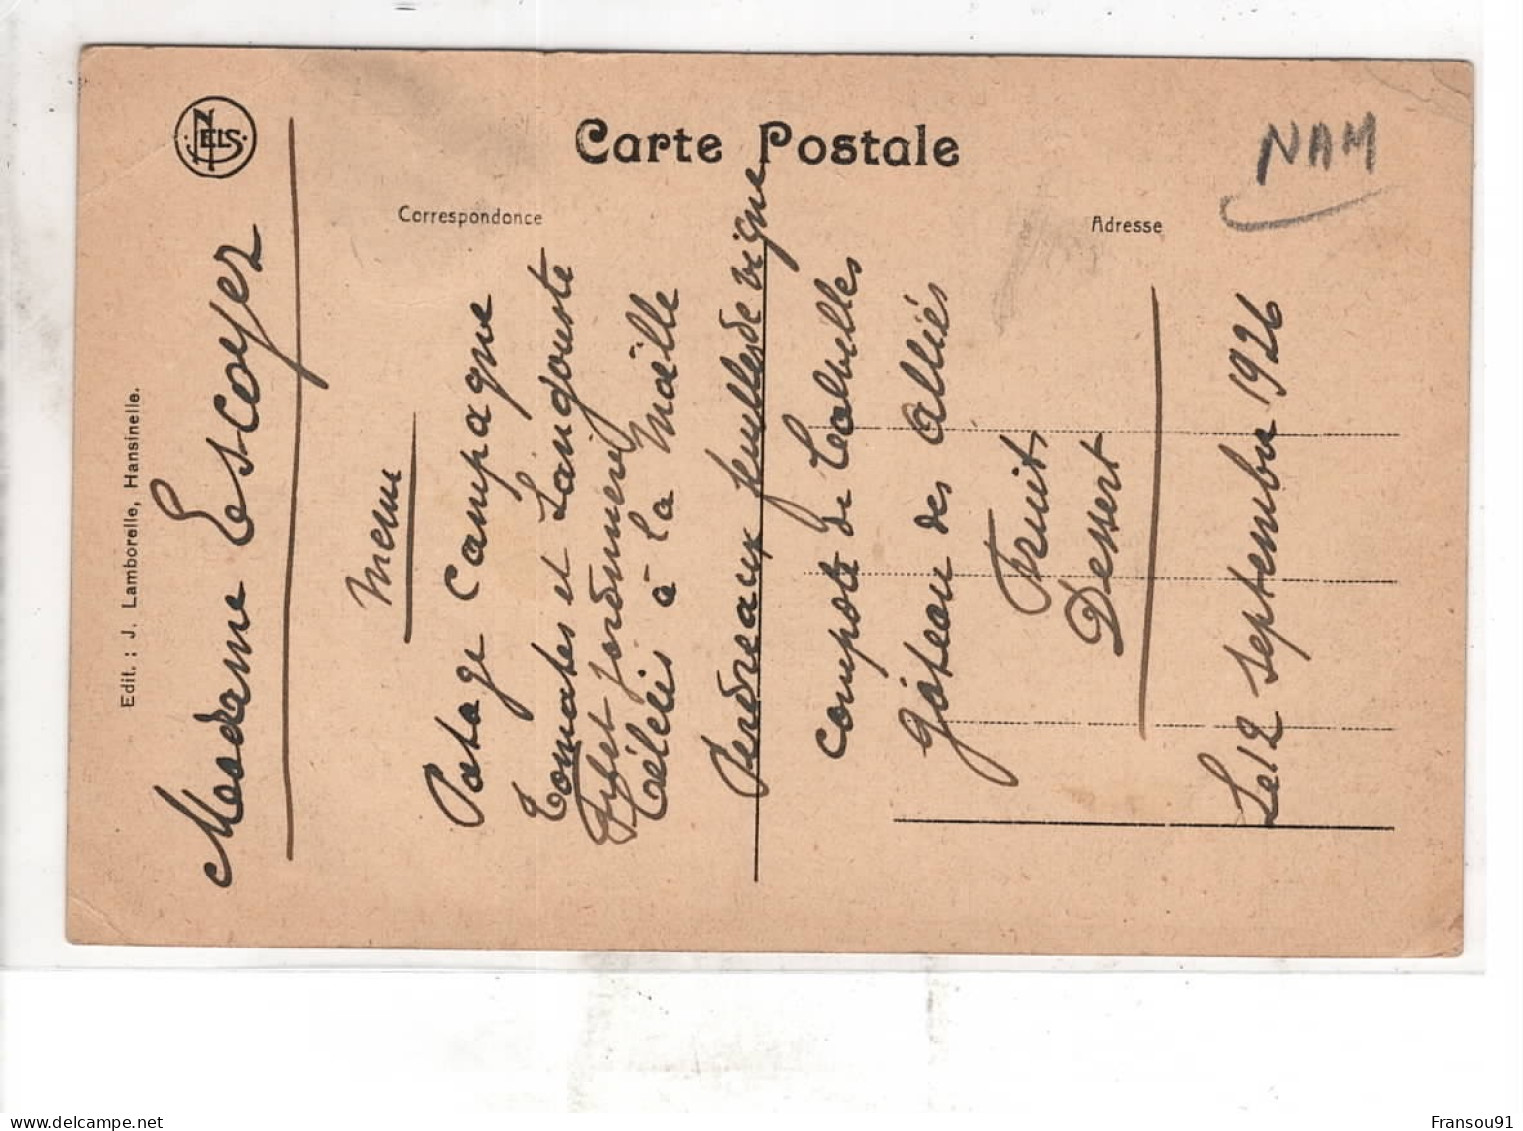 NELS
Carte Postale
NAM
Correspondance
Adresse
Edit. : J. Lamborelle, Hansinelle.
Madame Lescoyez
Menu
Potage Campagne
Tomates et Langouste
Filet jardinière
Céleris à la Moëlle
Perdreaux feuilles de vigne
Compote de Calvilles
Gâteau des Alliés
Fruits
Dessert
Le 12 septembre 1926
www.delcampe.net
Fransou91